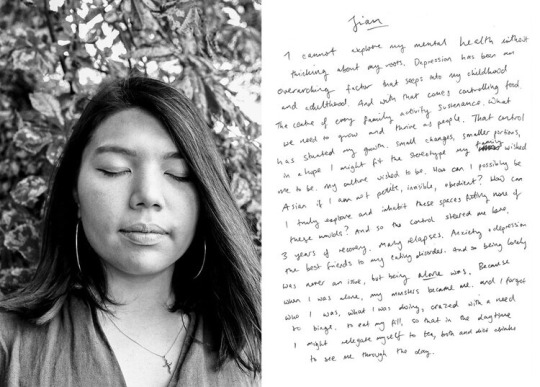 Jian
I cannot explore my mental health without
thinking about my roots. Depression has been an
overarching factor that seeps into my childhood
and adulthood. And with that comes controlling food.
The centre of every family activity sustenance. What
we need to grow and thrive as people. That control
has stunted my growth. Small changes, smaller portions,
in a hope I might fit the stereotype my family wished
me to be. My culture wished to be. How can I possibly be
Asian if I am not petite, invisible, obedient? How can
I truly explore and inhabit these spaces being none of
these moulds? And so the control starved me bare.
3 years of recovery. Many relapses. Anxiety + depression
the best friends to my eating disorder. And so being lonely
was never an issue, but being alone was. Because
when I was alone, my monsters became me. and I forgot
who I was, what I was doing, crazed with a need
to binge. to eat my fill, so that in the daytime
I might relegate myself to tea, broth and diet cokes
to see me through the day.